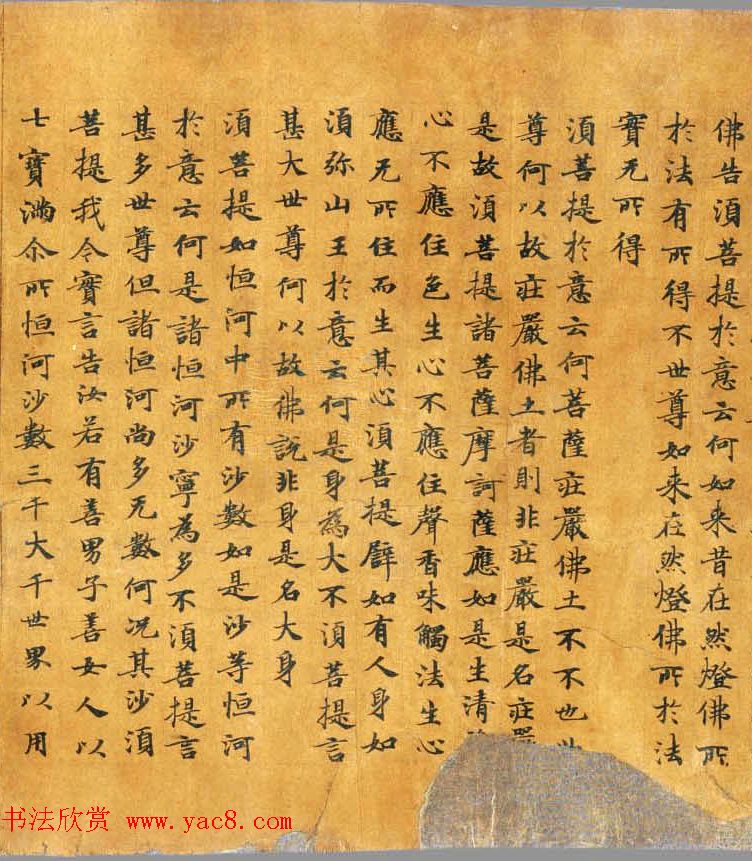 佛告須菩提於意云何如来昔在然燈佛所
於法有所得不世尊如来在然燈佛所於法
實无所得
須菩提於意云何菩薩莊嚴佛土不不也世
尊何以故莊嚴佛土者則非莊嚴是名莊嚴
是故須菩提諸菩薩摩訶薩應如是生清
心不應住色生心不應住聲香味觸法生心
應无所住而生其心須菩提譬如有人身如
須弥山王於意云何是身為大不須菩提言
甚大世尊何以故佛說非身是名大身
須菩提如恒河中所有沙數如是沙等恒河
於意云何是諸恒河沙寧為多不須菩提言
甚多世尊但諸恒河尚多无數何况其沙須
菩提我今實言告汝若有善男子善女人以
七寶滿尒所恒河沙數三千大千世界以用
书法欣赏 www.yac8.com